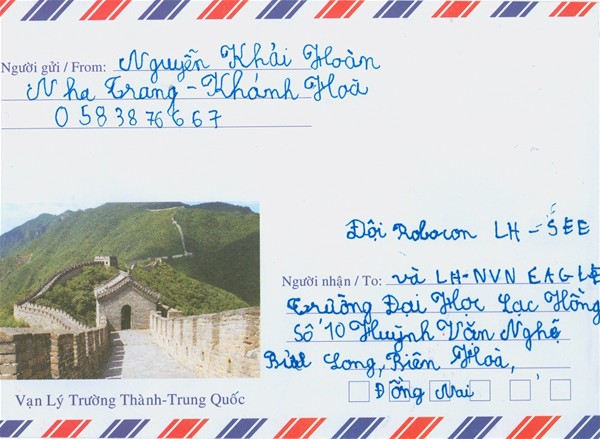 Người gửi / From: Nguyễn Khải Hoàn
Nha Trang - Khánh Hoà
058 3876667
Đội Robocon LH - SEE
Người nhận / To: và LH-NVN EAGLE
Trường Đại Học Lạc Hồng
Số 10 Huỳnh Văn Nghệ
Bửu Long, Biên Hoà,
Đồng Nai
Vạn Lý Trường Thành-Trung Quốc